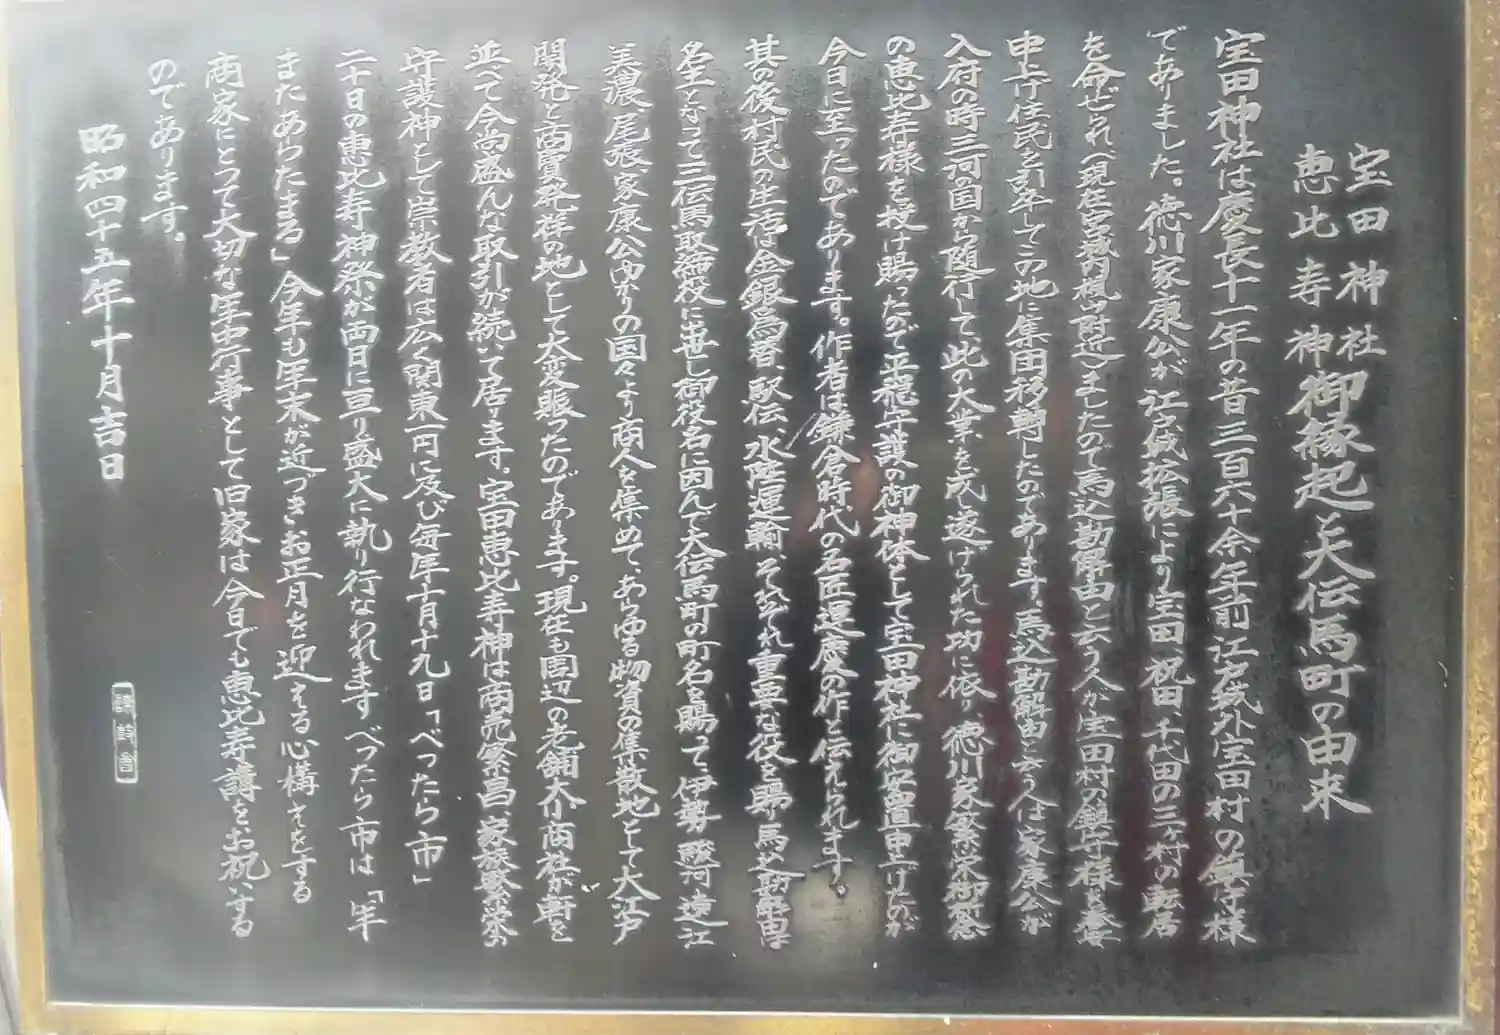 宝田神社
恵比寿神
御縁起と大伝馬町の由来
宝田神社は慶長十一年の昔三百六十余年前江戸城外宝田村の鎮守様
でありました。徳川家康公が江戸城拡張により宝田、祝田、千代田の三ヶ村の転居
を命ぜられ(現在宮城内楓山附近)ましたので馬込勘解由と云う人が宝田村の鎮守様を奉安
申上げ住民を引卒してこの地に集団移動したのであります。馬込勘解由と云う人は家康公が
入府の時三河の国から随行して此の大業を成し遂げられた功に依り徳川家繁栄御祈念
の恵比寿様を授け賜ったので平穏守護の御神体として宝田神社に御安置申上げたのが
今日に至ったのであります。作者は鎌倉時代の名匠運慶の作と伝えられます。
其の後村民の生活は金銀為替、駅伝、水陸運輸、それぞれ重要な役を賜り馬込勘解由は
名主となって三伝馬取締役に出世し御役名に因んで大伝馬町の町名を賜って、伊勢、駿河、遠江、
美濃、尾張、家康公ゆかりの国々より商人を集めて、あらゆる物資の集散地として大江戸
開発と商賈発祥の地として大変賑ったのであります。現在も周辺の老舗大小商社が軒を
並べて今尚盛んな取引が続いて居ります。宝田恵比寿神は商売繁昌、家族繁栄の
守護神として崇教者は広く関東一円に及び毎年十月十九日「べったら市」
二十日の恵比寿神祭が両日に亘り盛大に執り行なわれますべったら市は「年
またあらたまる」今年も年末が近づきお正月を迎える心構えをする
商家にとって大切な年中行事として旧家は今日でも恵比寿講をお祝いする
のであります。
昭和四十五年十月吉日